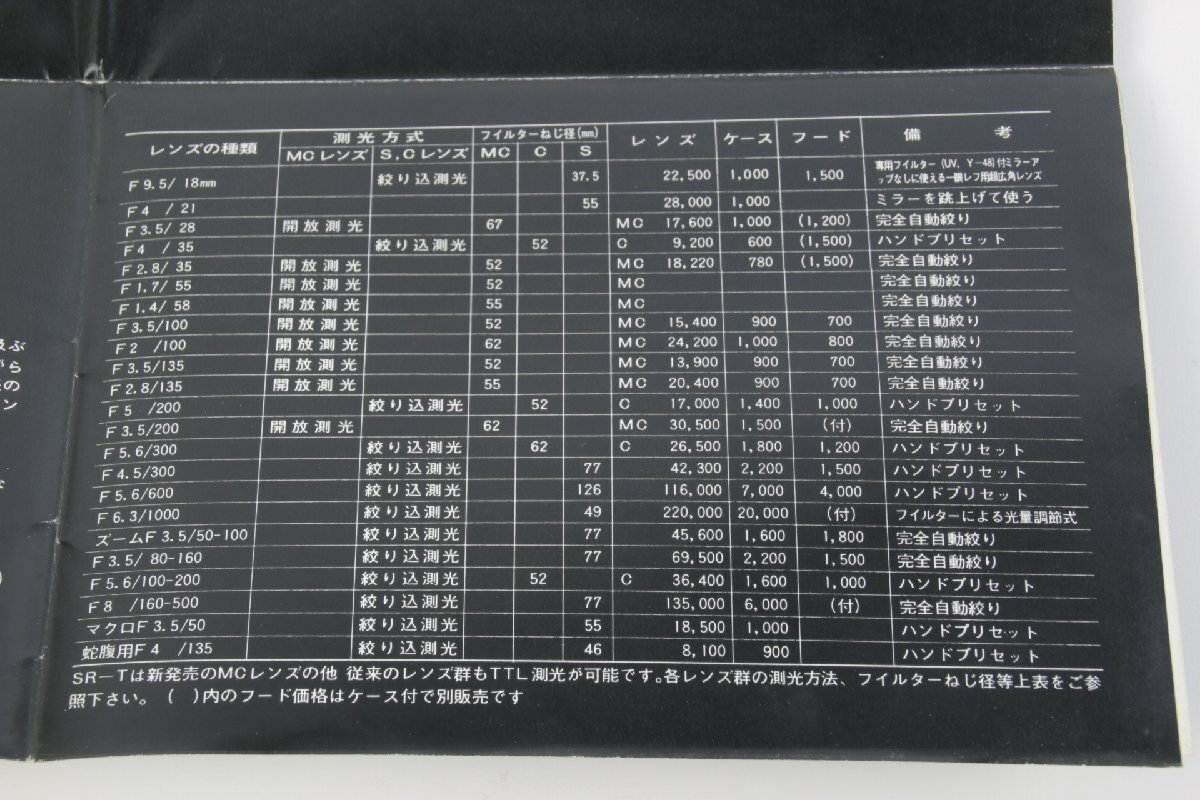 測光方式 フイルターねじ径(mm)
レンズの種類 MCレンズ S,Cレンズ MC C S レンズ ケース フード 備考
F9.5/ 18mm 絞り込測光 37.5 22,500 1,000 1,500 専用フイルター (UV, Y-48)付ミラーア
ップなしに使える一眼レフ用超広角レンズ
F4 / 21 55 28,000 1,000 ミラーを跳上げて使う
F3.5/ 28 開放測光 67 MC 17,600 1,000 (1,200) 完全自動絞り
F4 / 35 絞り込測光 52 C 9,200 600 (1,500) ハンドプリセット
F2.8/ 35 開放測光 52 MC 18,220 780 (1,500) 完全自動絞り
F1.7/ 55 開放測光 52 MC 完全自動絞り
F1.4/ 58 開放測光 55 MC 完全自動絞り
F3.5/100 開放測光 52 MC 15,400 900 700 完全自動絞り
F2 /100 開放測光 62 MC 24,200 1,000 800 完全自動絞り
F3.5/135 開放測光 52 MC 13,900 900 700 完全自動絞り
F2.8/135 開放測光 55 MC 20,400 900 700 完全自動絞り
F5 /200 絞り込測光 52 C 17,000 1,400 1,000 ハンドプリセット
F3.5/200 開放測光 62 MC 30,500 1,500 (付) 完全自動絞り
F5.6/300 絞り込測光 62 C 26,500 1,800 1,200 ハンドプリセット
F4.5/300 絞り込測光 77 42,300 2,200 1,500 ハンドプリセット
F5.6/600 絞り込測光 126 116,000 7,000 4,000 ハンドプリセット
F6.3/1000 絞り込測光 49 220,000 20,000 (付) フイルターによる光量調節式
ズームF3.5/50-100 絞り込測光 77 45,600 1,600 1,800 完全自動絞り
F3.5/ 80-160 絞り込測光 77 69,500 2,200 1,500 完全自動絞り
F5.6/100-200 絞り込測光 52 C 36,400 1,600 1,000 ハンドプリセット
F8 /160-500 絞り込測光 77 135,000 6,000 (付) 完全自動絞り
マクロF3.5/50 絞り込測光 55 18,500 1,000 ハンドプリセット
蛇腹用F4 /135 絞り込測光 46 8,100 900 ハンドプリセット
SR-Tは新発売のMCレンズの他 従来のレンズ群もTTL測光が可能です。各レンズ群の測光方法、フイルターねじ径等上表をご参
照下さい。 ( )内のフード価格はケース付で別販売です
ぶ
ら
の
ン
)